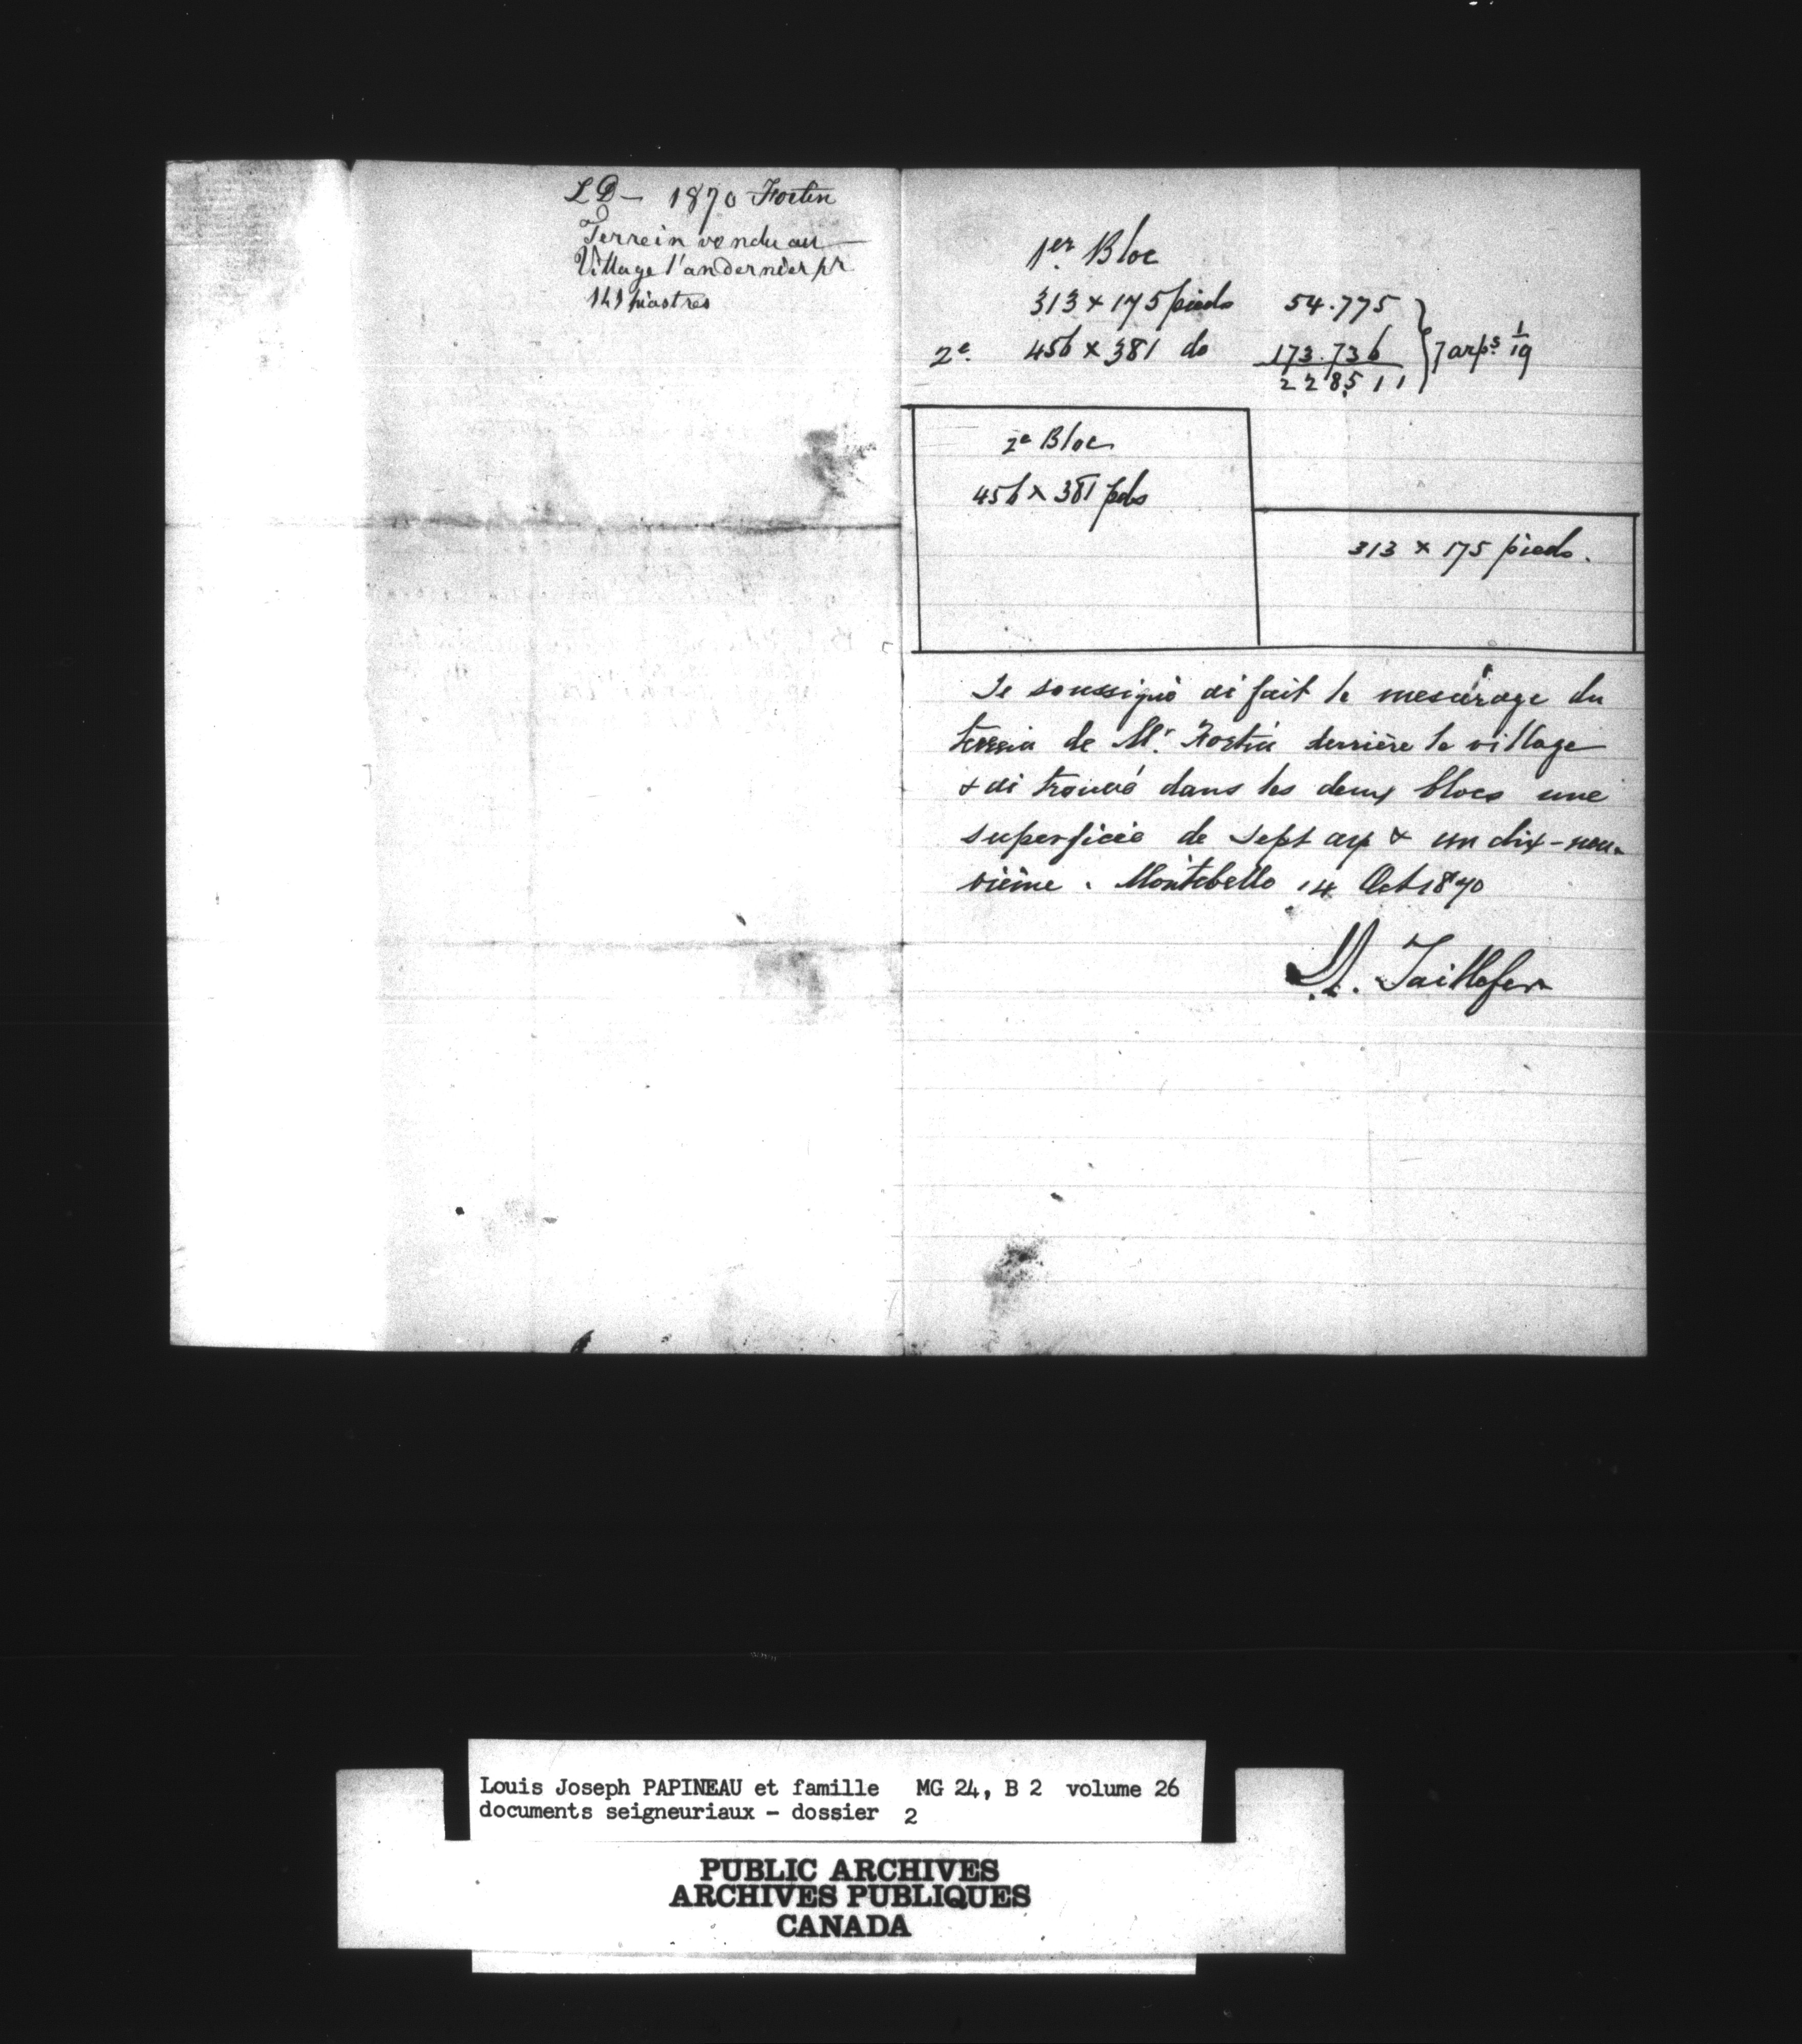 LD — 1870 Fortin
Terrein vendu au
Village l'an dernier pr
141 piastres
1er Bloc
313 x 175 pieds 54.775
2e. 456 x 381 do 173.736 } 7 arps 1/19
228511
2e Bloc
456 x 381 pds
313 x 175 pieds.
Je soussigné ai fait le mesurage du
terrein de Mr. Fortin derrière le village
& ai trouvé dans les deux blocs une
superficie de sept arp & un dix-neu-
vième. Montebello 14 Oct 1870
M. Taillefer
Louis Joseph PAPINEAU et famille MG 24, B 2 volume 26
documents seigneuriaux - dossier 2
PUBLIC ARCHIVES
ARCHIVES PUBLIQUES
CANADA